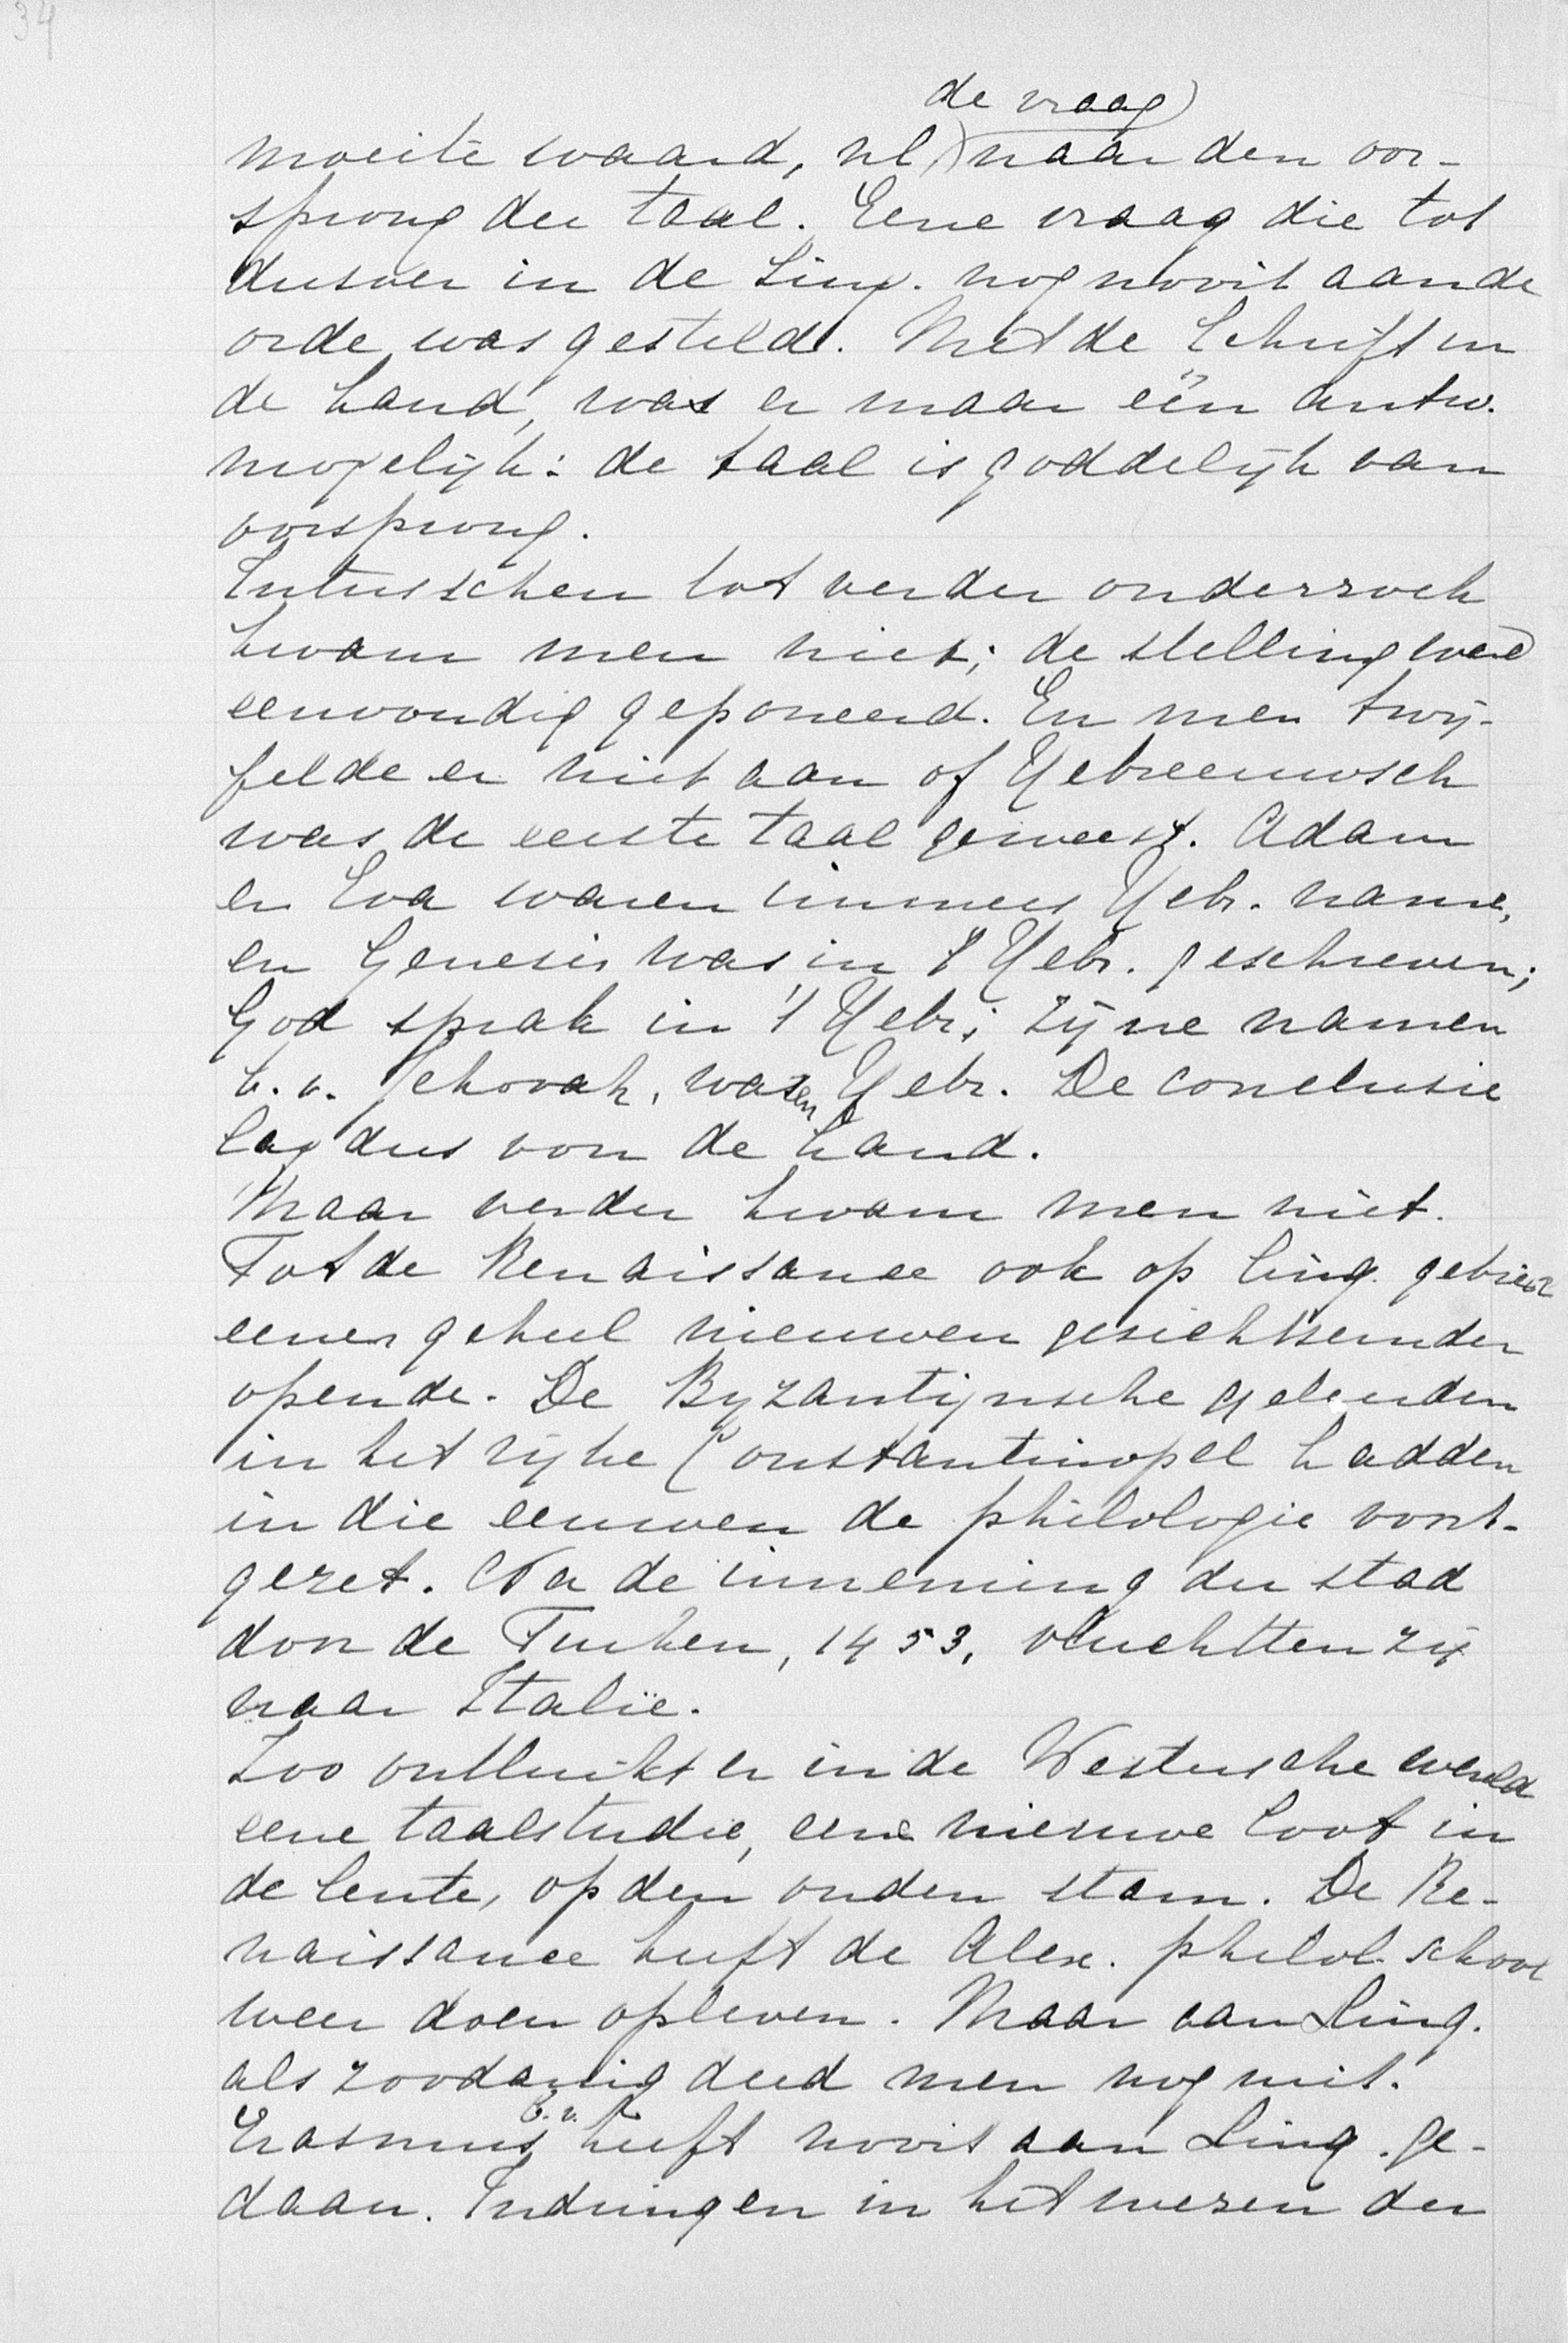 34
de vraag
moeite waard, nl. naar den oor-
sprong der taal. Eene vraag die tot
dusver in de Ling. nog nooit aan de
orde was gesteld. Met de Schrift in
de hand, was er maar één antw.
mogelijk: de taal is goddelijk van
oorsprong.
Intusschen tot verder onderzoek
kwam men niet; de stelling werd
eenvoudig geponeerd. En men twij-
felde er niet aan of Hebreeuwsch
was de eerste taal geweest. Adam
en Eva waren immers Hebr. name,
en Genesis was in 't Hebr. geschreven;
God sprak in 't Hebr; zijne namen
b.v. Jehovah, waren Hebr. De conclusie
lag dus voor de hand.
Maar verder kwam men niet.
Tot de Renaissance ook op ling. gebied
eenen geheel nieuwen gezichtseinder
opende. De Byzantijnsche geleerden
in het rijke Constantinopel hadden
in die eeuwen de philologie voort-
gezet. Na de inneming der stad
door de Turken, 1453, vluchtten zij
naar Italië.
Zoo ontluikt er in de Westersche wereld
eene taalstudie, eene nieuwe loot in
de lente, op den ouden stam. De Re-
naissance heeft de Alex. philol. school
weer doen opleven. Maar aan Ling.
als zoodanig deed men nog niet.
b.v.
Erasmus heeft nooit aan Ling. ge-
daan. Indringen in het wezen der